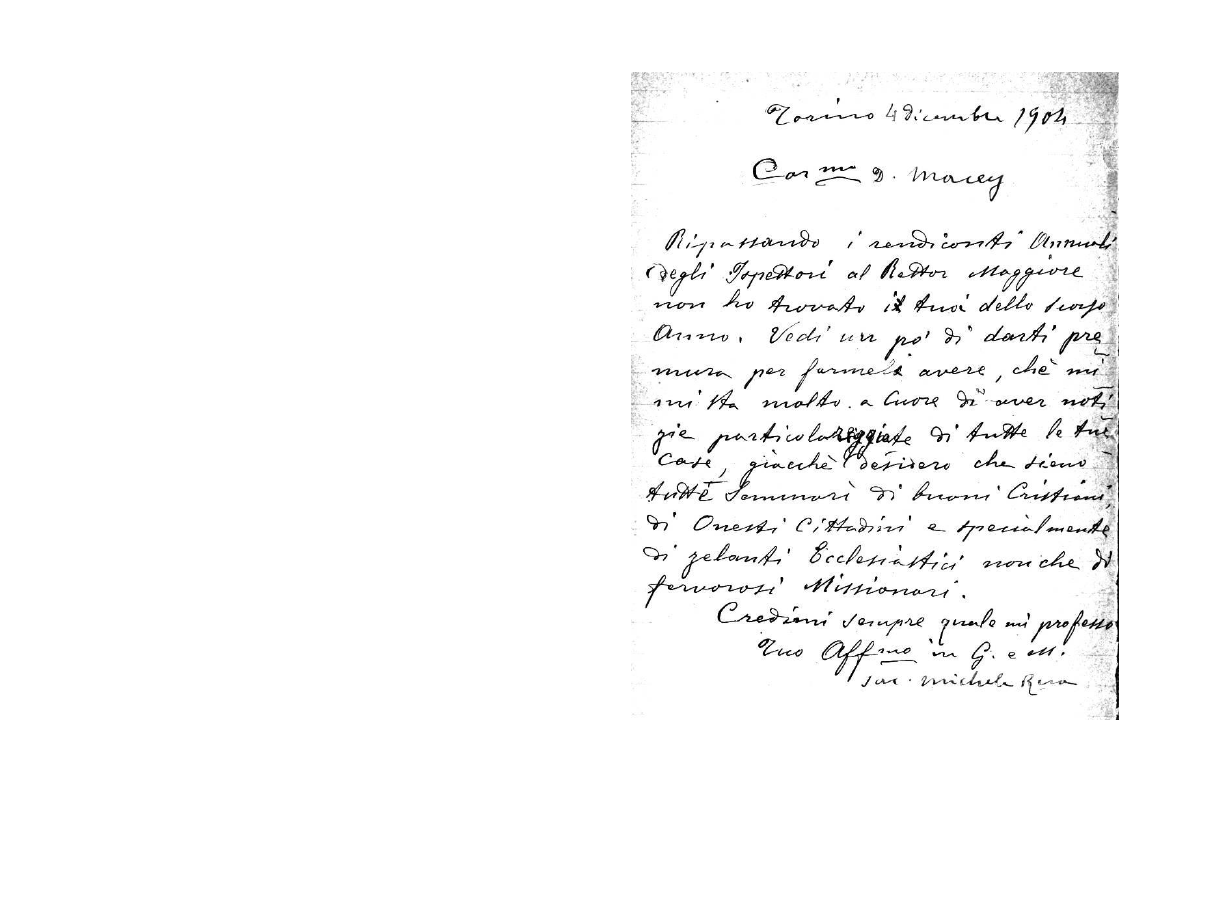 Torino 4 dicembre 1904
Car.mo D. Macey
Ripassando i rendiconti Annuali
degli Ispettori al Rettor Maggiore
non ho trovato i tuoi dello scorso
Anno. Vedi un po' di darti pre
mura per farmeli avere, chè mi
mi sta molto a Cuore di aver noti
zie particolareggiate di tutte le tue
Case, giacchè desidero che sieno
tutte Seminari di buoni Cristiani,
di Onesti Cittadini e specialmente
di zelanti Ecclesiastici nonche di
fervorosi Missionari.
Credimi sempre quale mi professo
Tuo Aff.mo in G. e M.
Sac. Michele Rua